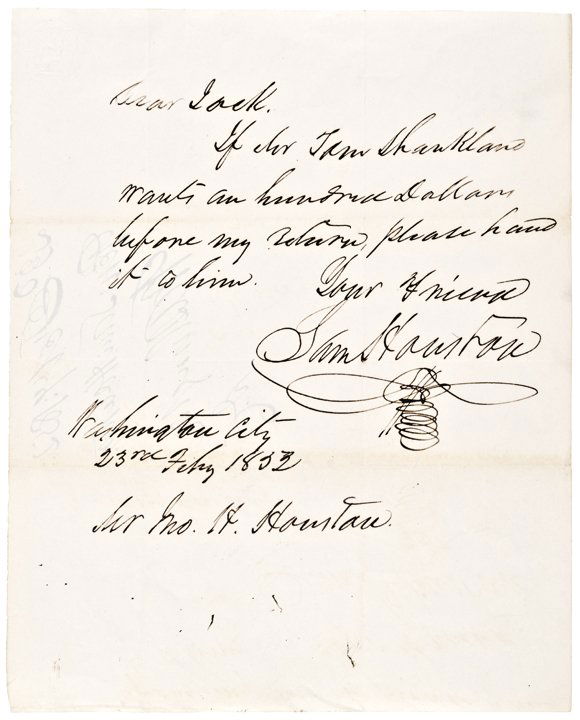 Dear Jack.
If Mr Tom Shankland
wants an hundred Dollars
before my return, please hand
it to him. Your Friend
Sam Houston
Washington City
23rd Feby 1852
Mr Jno. H. Houston.